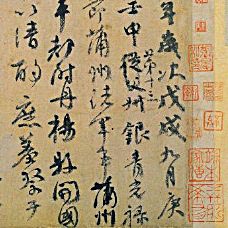 年歲次戊戌九月庚
壬申第十三從父叔銀青光祿
節蒲州諸軍事蒲州
車都尉丹楊縣開國
以清酌庶羞祭于